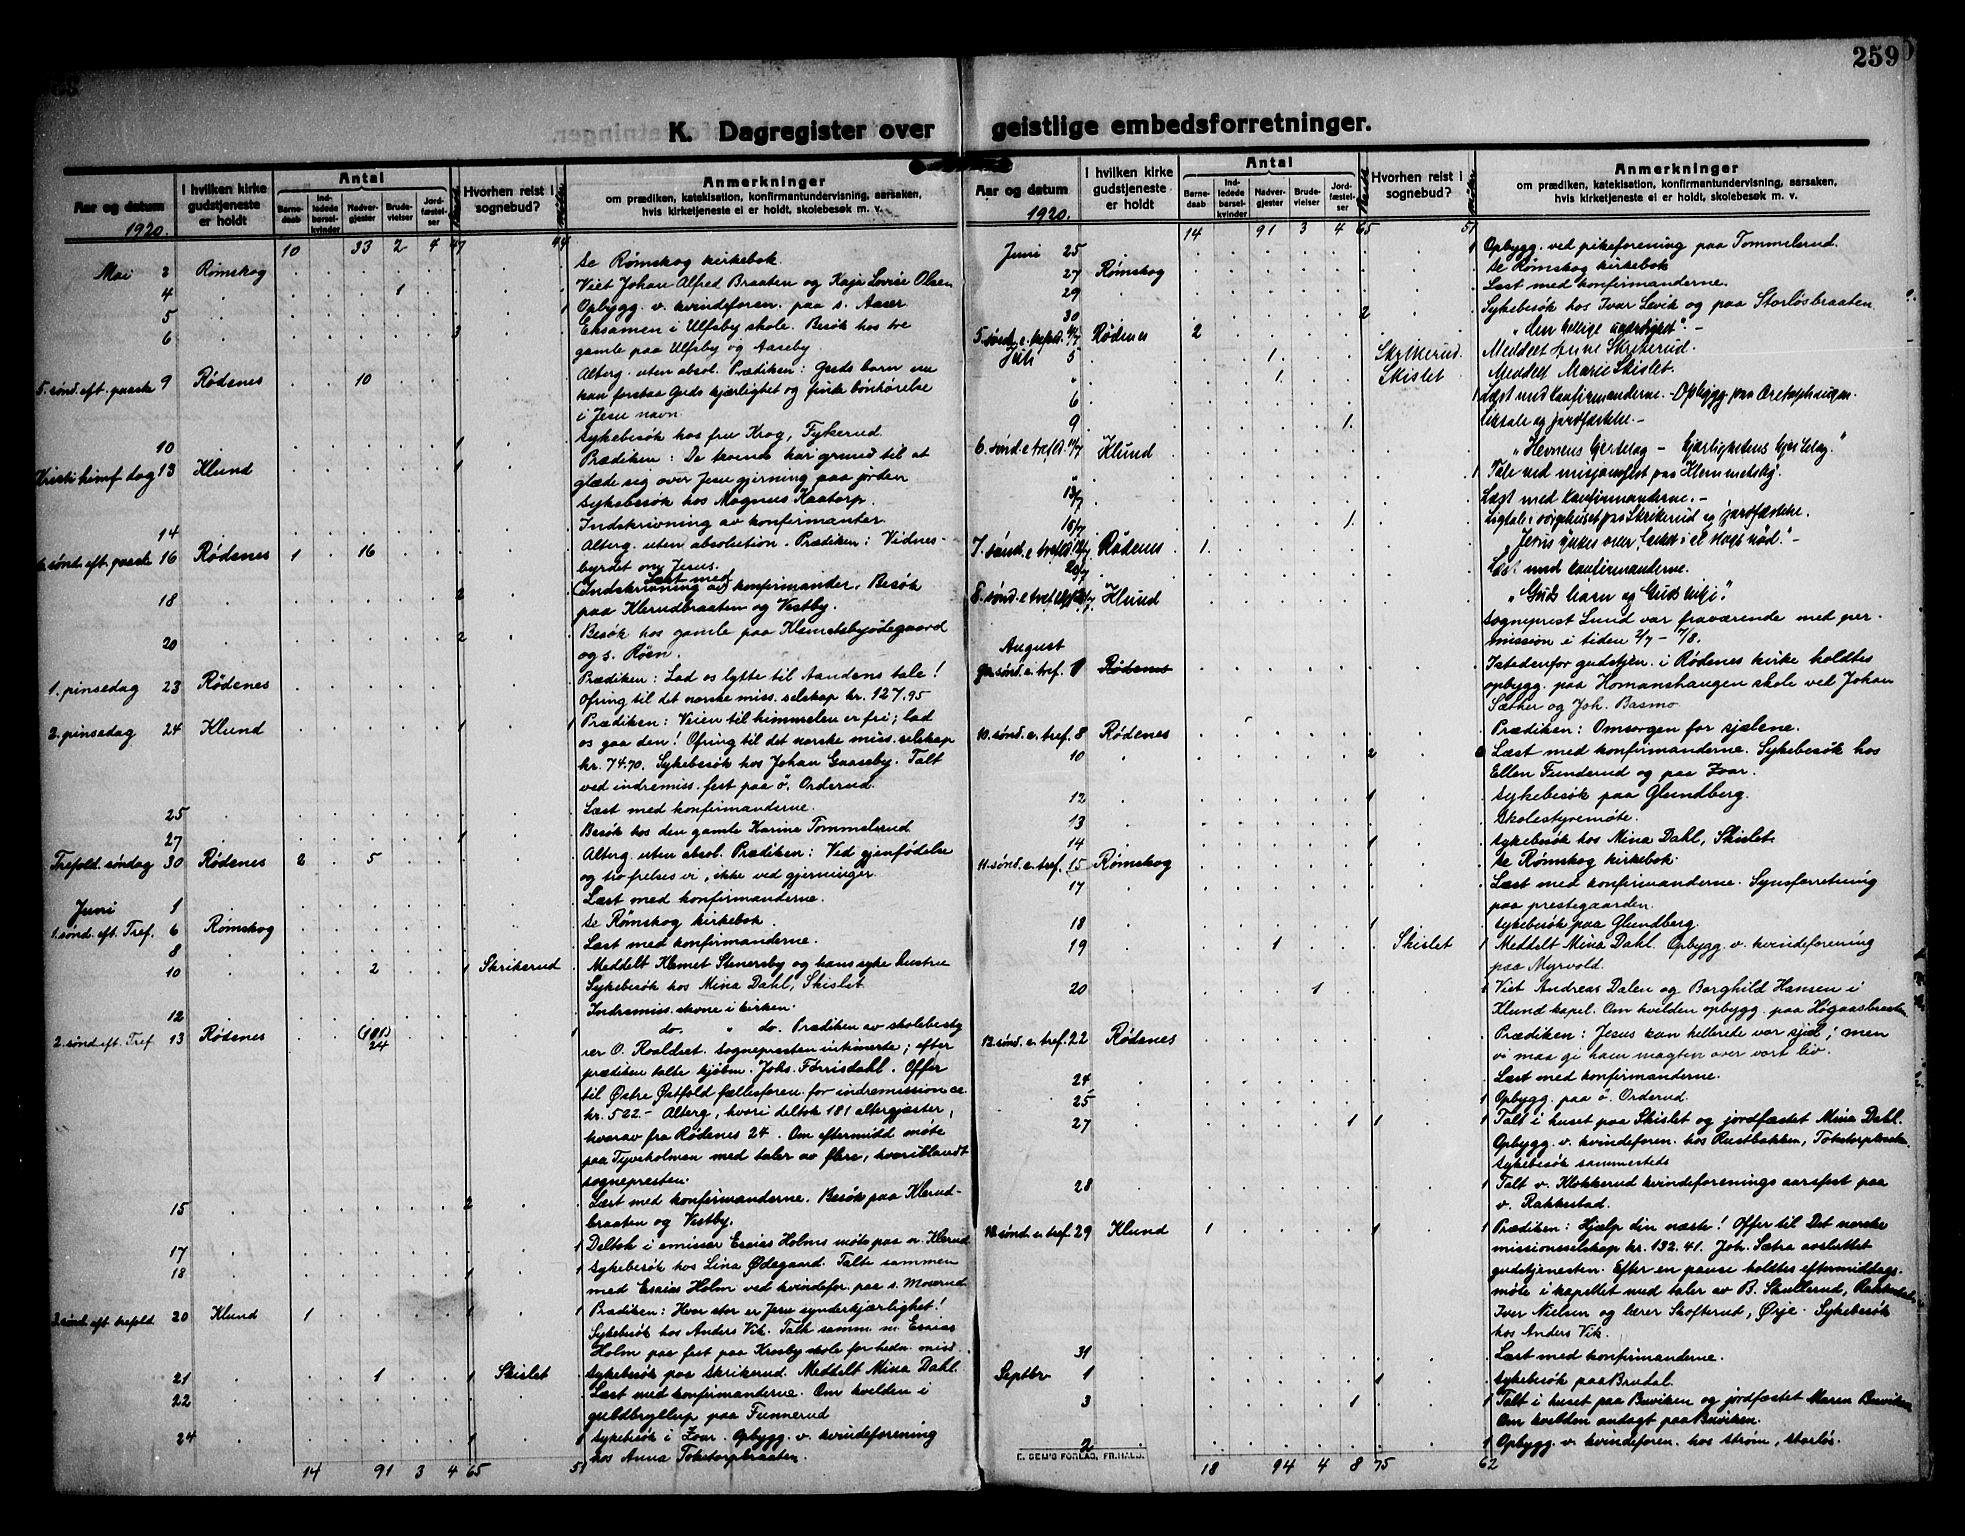 259
K. Dagregister over geistlige embedsforretninger.
Aar og datum
1920.
I hvilken kirke gudstjeneste er holdt
Antal
Barnedaab
Indledede barselkvinder
Nadvergjester
Brudevielser
Jordfæstelser
Hvorhen reist i sognebud?
Anmerkninger
om prædiken, katekisation, konfirmantundervisning, aarsaken, hvis kirketjeneste ei er holdt, skolebesøk m. v.
10 33 2 4 47 44
Mai 2 Rømskog Se Rømskog kirkebok.
4 1 Viet Johan Alfred Braaten og Kaja Lovise Olsen
5 1 Opbygg. v. kvindeforen. paa s. Aaser
6 3 Eksamen i Ulfsby skole. Besøk hos tre
gamle paa Ulfsby og Aaseby.
5. sønd. eft. paaske 9 Rødenes 10 Alterg. uten absol. Prædiken: Guds barn nu
kan forstaa Guds kjærlighet og finde bønhørelse
i Jesu navn.
10 1 Sykebesøk hos fru Krog, Fykerud.
Kristi himf. dag 13 Klund 1 Prædiken: De troende har grund til at
glæde sig over Jesu gjerning paa jorden
Sykebesøk hos Magnus Kaatorp.
14 Indskrivning av konfirmanter.
6. sønd. eft. paaske 16 Rødenes 1 16 Alterg. uten absolution. Prædiken: Vidnes-
byrdet om Jesus.
Læst med
18 2 (Indskrivning av) konfirmander. Besøk
paa Klerudbraaten og Vestby.
20 2 Besøk hos gamle paa Klemetsbyødegaard
og s. Røen.
1. pinsedag 23 Rødenes Prædiken: Lad os lytte til Aandens tale!
Ofring til det norske miss. selskap kr. 127.95
2. pinsedag 24 Klund 1 1 Prædiken: Veien til himmelen er fri; lad
os gaa den! Ofring til det norske miss. selskap
kr. 74.70. Sykebesøk hos Johan Gaaseby. Talt
ved indremiss. fest paa ö. Orderud.
25 Læst med konfirmanderne.
27 1 Besøk hos den gamle Karine Tommelerud
Trefold. søndag 30 Rødenes 2 5 Alterg. uten absol. Prædiken: Ved gjenfødelse
og tro frelses vi, ikke ved gjerninger.
Juni 1 Læst med konfirmanderne.
1. sønd. eft. Tref. 6 Rømskog Se Rømskog kirkebok.
8 Læst med konfirmanderne.
10 2 1 Skrikerud Meddelt Klemet Stenersby og hans syke hustru
Sykebesøk hos Mina Dahl, Skislet.
12 Indremis. stevne i kirken.
2. sønd. eft. Tref. 13 Rødenes (181) 24 1 do. " do. Prædiken av skolebesty
rer O. Roaldset. Sognepresten intimerte; efter
prædiken talte kjøbm. Johs. Førrisdahl. Offer
til Østre Østfold fællesforen. for indremission ca
kr. 522.- Alterg., hvori deltok 181 altergjæster,
hvorav fra Rødenes 24. Om eftermidd møte
paa Tyveholmen med taler av flere, hvoriblandt
sognepresten.
15 2 Læst med konfirmanderne. Besøk paa Klerud-
braaten og Vestby.
17 1 Deltok i emissær Esaias Holms møte paa n. Klerud
18 1 1 Sykebesøk hos Lina Ødegaard. Talte sammen
med Esaias Holm ved kvindefor. paa s. Moserud
3. sønd. eft. trefold. 20 Klund 1 1 1 Prædiken: Hvor stor er Jesu synderkjærlighet!
Sykebesøk hos Anders Vik. Talte samm. m. Esaias
Holm paa fest paa Krosby skole for hedn. miss.
21 1 1 Skislet Sykebesøk paa Skrikerud. Meddelt Mina Dahl.
22 Læst med konfirmanderne. Om kvelden i
guldbryllup paa Funnerud
24 1 1 Sykebesøk i Ivar. Opbygg. v. kvindeforening
hos Anna Toketorpbraaten.
14 91 3 4 65 51
Aar og datum
1920.
I hvilken kirke gudstjeneste er holdt
Antal
Barnedaab
Indledede barselkvinder
Nadvergjester
Brudevielser
Jordfæstelser
Hvorhen reist i sognebud?
Anmerkninger
om prædiken, katekisation, konfirmantundervisning, aarsaken, hvis kirketjeneste ei er holdt, skolebesøk m. v.
14 91 3 4 65 51
Juni 25 1 Opbygg. ved pikeforening paa Tommelerud.
27 Rømskog Se Rømskog kirkebok
29 Læst med konfirmanderne.
30 2 Sykebesøk hos Ivar Levik og paa Storlösbraaten
5. sønd. e. trefold. 4/7 Rødenes 2 "Den hellige
Juli 5 1 Skrikerud. Meddelt Anne Skrikerud.
" 1 Skislet Meddelt Marie Skislet.
6 1 Læst med konfirmanderne. - Opbygg. paa
9 1 Liktale og jordfæstelse. -
6. sønd. e. trefold. 11/7 Klund "Hevnens Gjerdelag - Kjærlighetens Gjerdelag"
" 1 Tale ved misjonsfest paa Klemmetsby.
13/7 Læst med konfirmanderne. -
15/7 1 Ligtale i sørgehuset paa Skrikerud og jordfæstelse.
7. sønd. e. trefold. 18/7 Rødenes 1 "Jesus ynkes over folket i et stort nød." -
20/7 Læst med konfirmanderne.
8. sønd. e. trefold. 25/7 Klund "Guds barn og Guds vilje."
Sogneprest Lund var fraværende med per-
mission i tiden 2/7 - 7/8.
August
9de sønd. e. tref. 1 Rødenes Istedenfor gudstjen. i Rødenes kirke holdtes
opbygg. paa Homanshaugen skole vel Johan
Sæther og Joh. Basmo
10. sønd. e. tref. 8 Rødenes Prædiken: Omsorgen for sjælene.
10 2 Læst med konfirmanderne. Sykebesøk hos
Ellen Funderud og paa Ivar.
12 1 Sykebesøk paa Glundberg.
13 Skolestyremøte.
14 1 Sykebesøk hos Mina Dahl, Skislet
11. sønd. e. tref. 15 Rømskog Se Rømskog kirkebok.
17 Læst med konfirmanderne. Synsforretning
paa prestegaarden.
18 1 Sykebesøk paa Glundberg.
19 1 Skislet 1 Meddelt Mina Dahl. Opbygg. v. kvindeforening
paa Myrvold.
20 1 1 Viet Andreas Dalen og Borghild Hansen i
Klund kapel. Om kvelden opbygg. paa Högaasbraaten
12. sønd. e. tref. 22 Rødenes Prædiken: Jesus kan helbrede vor sjæl; men
vi maa gi ham magten over vort liv.
24 Læst med konfirmanderne.
25 1 Opbygg. paa ö. Orderud.
27 1 1 1 Talt i huset paa Skislet og jordfæstet Mina Dahl.
Opbygg. v. kvindeforen. hos Rustbakken, Toketorpbraaten
Sykebesøk sammesteds
28 1 Talt v. Klokkerud kvindeforenings aarsfest paa
v. Rakkestad.
13. sønd. e. tref. 29 Klund 1 1 1 Prædiken: Hjælp din næste! Offer til Det norske
missionsselskap kr. 132.41. Joh. Sætra avsluttet
gudstjenesten. Efter en pause holdtes eftermiddags-
møte i kapellet med taler av B. Skullerud, Rakkestad,
Iver Nielsen og lærer Skofterud, Ørje. Sykebesøk
hos Anders Vik.
31 Læst med konfirmanderne.
Septbr 1 1 Sykebesøk paa Brudal.
3 1 1 Talt i huset paa Buviken og jordfæstet Maren Buviken
Om kvelden andagt paa Buviken.
2 1 Opbygg. v. kvindeforen. hos Strøm, Storlös.
E. SEM'S FORLAG, FR.HALD.
18 94 4 8 75 62